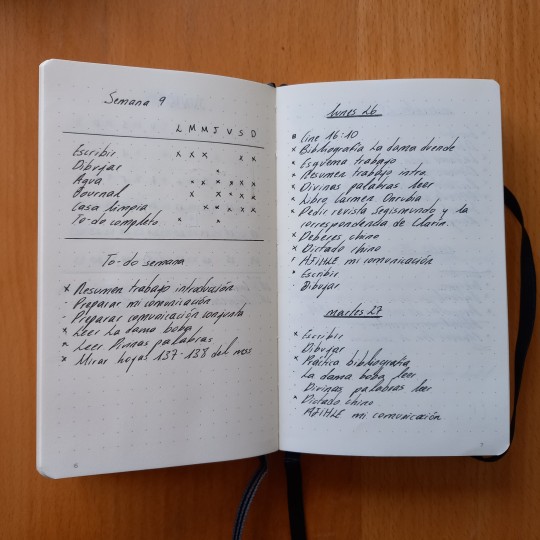 Semana 9
L M M J V S D
Escribir x x x x x
Dibujar x
Agua x x x x x x
Journal x x x x x
Casa limpia x x x x x
To-do completo x x
To-do semana
x Resumen trabajo introducción
- Preparar mi comunicación
- Preparar comunicación conjunta
x Leer La dama boba
x Leer Divinas palabras
x Mirar hojas 137-138 del mss
6
lunes 26
Cine 16:10
x Bibliografía La dama duende
x Esquema trabajo
x Resumen trabajo intro.
x Divinas palabras leer
x Libro Carmen Onrubia
x Pedir revista Segismundo y la
correspondencia de Clarín.
x Deberes chino
x Dictado chino
mi comunicación
x Escribir
- Dibujar
martes 27
x Escribir
Dibujar
x Práctica bibliografía
La dama boba leer
Divinas palabras leer
x Dictado chino
mi comunicación
7